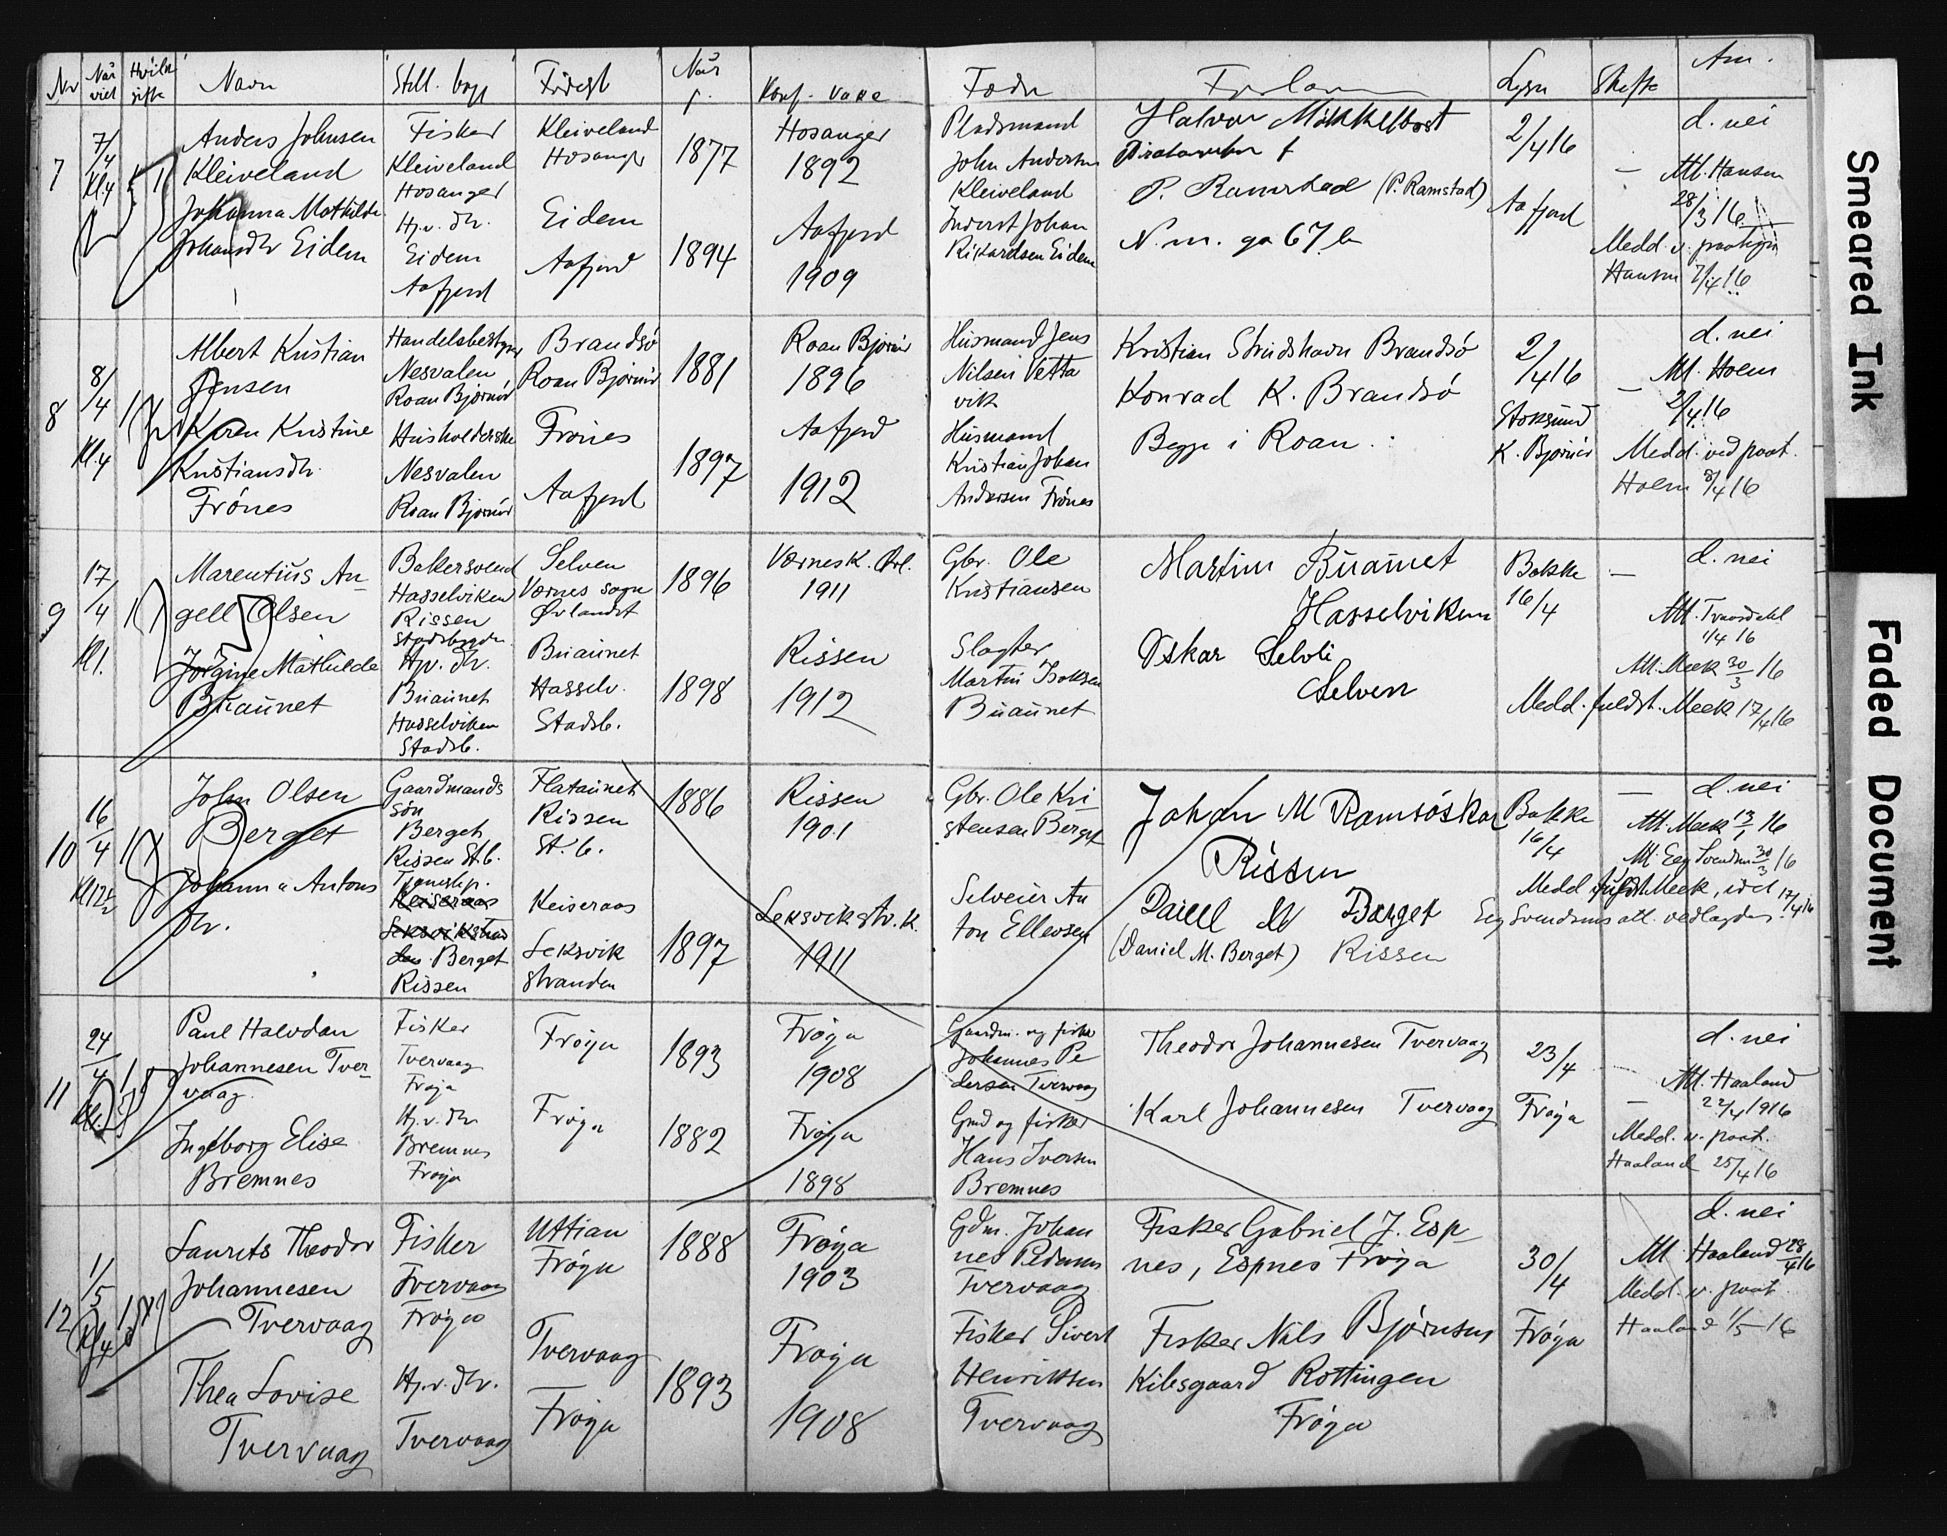 Nr Når viet Hvilk gifte Navn Still. bopl Födest Når f. Konf. Vakc Fader Forlovere Lysn Skifte Anm.
7
7/4 Kl. 4
Anders Johnsen
Kleiveland
Johanna Mathilde
Johansdtr Eidem
Fisker
Kleiveland
Hosanger
Hj.v. dtr.
Eidem
Aafjord
Kleiveland
Hosanger
Eidem
Aafjord
1877
1894
Hosanger
1892
Aafjord
1909
Pladsmand
John Andersen
Kleiveland
Inderst Johan
Rikardsen Eidem
Halvor Mökkelbost
P. Ramstad (P. Ramstad)
2/4 16
Aafjord
—
d. nei
Att. Hansen
28/3 16
Medd. v. paategn
Hansen 7/4 16
8
8/4
Kl. 4
Albert Kristian
Jensen
Karen Kristine
Kristiansdtr.
Frönes
Handelsbestyrer
Nesvalen
Roan Bjørnör
Husholderske
Nesvalen
Roan Bjørnör
Brandsö
Roan Bjørnör
Frönes
Aafjord
1881
1897
Roan Bjørnör
1896
Aafjord
1912
Husmand Jens
Nilsen Vetta
vik
Husmand
Kristian Johan
Andersen Frönes
Kristian Strudshavn Brandsö
Konrad K. Brandsö
Begge i Roan.
2/4 16
Stoksund
K. Bjørnör
—
d. nei
Att. Holm
2/4 16
Medd. ved paat.
Holm 8/4 16
9
17/4
Kl.
Marentius An-
gell Olsen
Jörgine Mathilde
Buaunet
Bakersvend
Hasselviken
Rissen
Stadsbygden
Hjv. dtr.
Buaunet
Hasselviken
Stadsb.
Selven
Værnes sogn
Ørlandet
Buaunet
Hasselv.
Stadsb.
1896
1898
Værnes K. Ørl.
1911
Rissen
1912
Gbr. Ole
Kristiansen
Slagter
Martin Isaksen
Buaunet
Martin Buaunet
Hasselviken
Oskar Selvli
Selven
Bakke
16/4
—
d. nei
Att. Tvaardahl
1/4 16
Att. Meek 30/3 16
Medd. fuldst. Meek 17/4 16
10
16/4
John Olsen
Berget
Johanna Antons
dtr.
Gaardmands
sön
Berget
Rissen St.b.
Tjenestp.
Keiseraas
Berget
Rissen
Flataunet
Rissen
St. b.
Keiseraas
Leksvik
stranden
1886
1897
Rissen
1901
Leksvikstr. K.
1911
Gbr. Ole Kri
stensen Berget
Selveier An
ton Ellevsen
Johan M Ramsöskar
Rissen
Daniel M Berget
(Daniel M. Berget) Rissen
Bakke
16/4
—
d. nei
Att. Meek 13/1 16
Att. Eeg Svendsen 30/3 16
Medd. fuldst Meek, idet 17/4 16
Eeg Svendsens att. vedlagdes
11
24/4
Paul Halvdan
Johannesen Tver-
vaag.
Ingeborg Elise
Bremnes
Fisker
Tvervaag
Frøja
Hj.v. dtr
Bremnes
Frøja
Frøya
Frøya
1893
1882
Frøya
1908
Frøya
1898
Gaardm. og fisker
Johannes Pe
dersen Tvervaag
Gmd og fisker
Hans Iversen
Bremnes
Theodor Johannesen Tvervaag
Karl Johannesen Tvervaag
23/4
Frøya
—
d. nei
Att. Haaland
22/4 1916
Medd. v. paat.
Haaland 25/4 16
12
1/5
Kl 4
Laurits Theodor
Johannesen
Tvervaag
Thea Lovise
Tvervaag
Fisker
Tvervaag
Frøya
Hj.v. dtr.
Tvervaag
Uttian
Frøya
Tvervaag
Frøya
1888
1893
Frøya
1903
Frøya
1908
Gdm. Johan
nes Pedersen
Tvervaag
Fisker Sivert
Henriksen
Tvervaag
Fisker Gabriel J. Esp
nes, Espnes Frøya
Fisker Nils Bjørnsen
Kibsgaard Rottingen
Frøya
30/4
Frøya
d. nei
Att. Haaland 28/4 16
Medd. v. paat.
Haaland 1/5 16
Smeared Ink
Faded Document